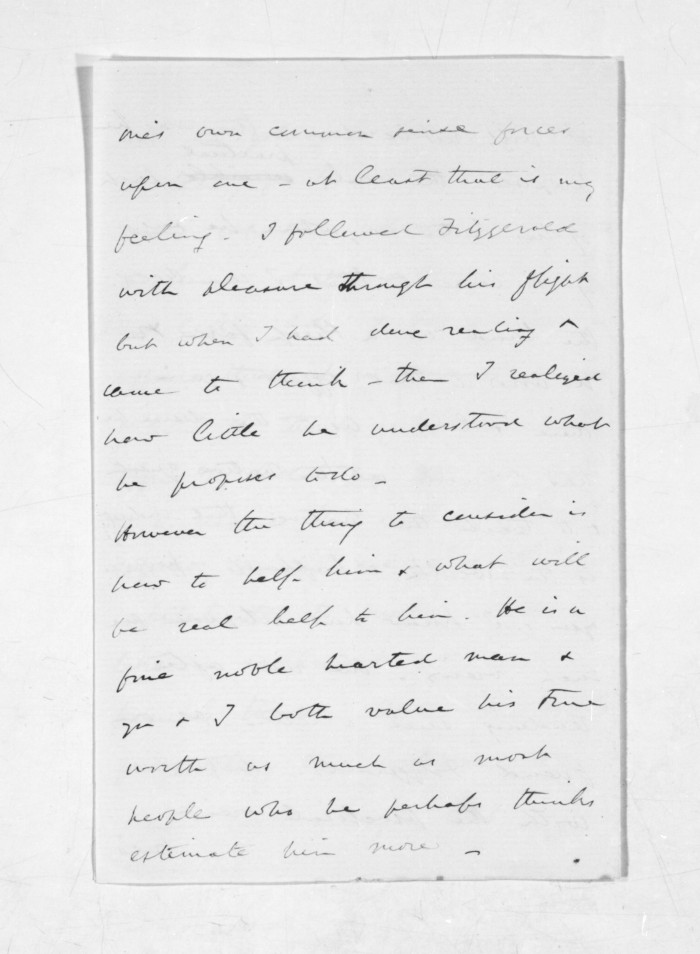 one's own common sense forces
upon one - at least that is my
feeling. I followed Fitzgerald
with pleasure through his flight
but when I had done reading &
came to think - then I realized
how little he understood what
he proposes to do -
However the thing to consider is
how to help him & what will
be real help to him. He is a
fine noble hearted man &
you & I both value his true
worth as much as most
people who he perhaps thinks
estimate him more -